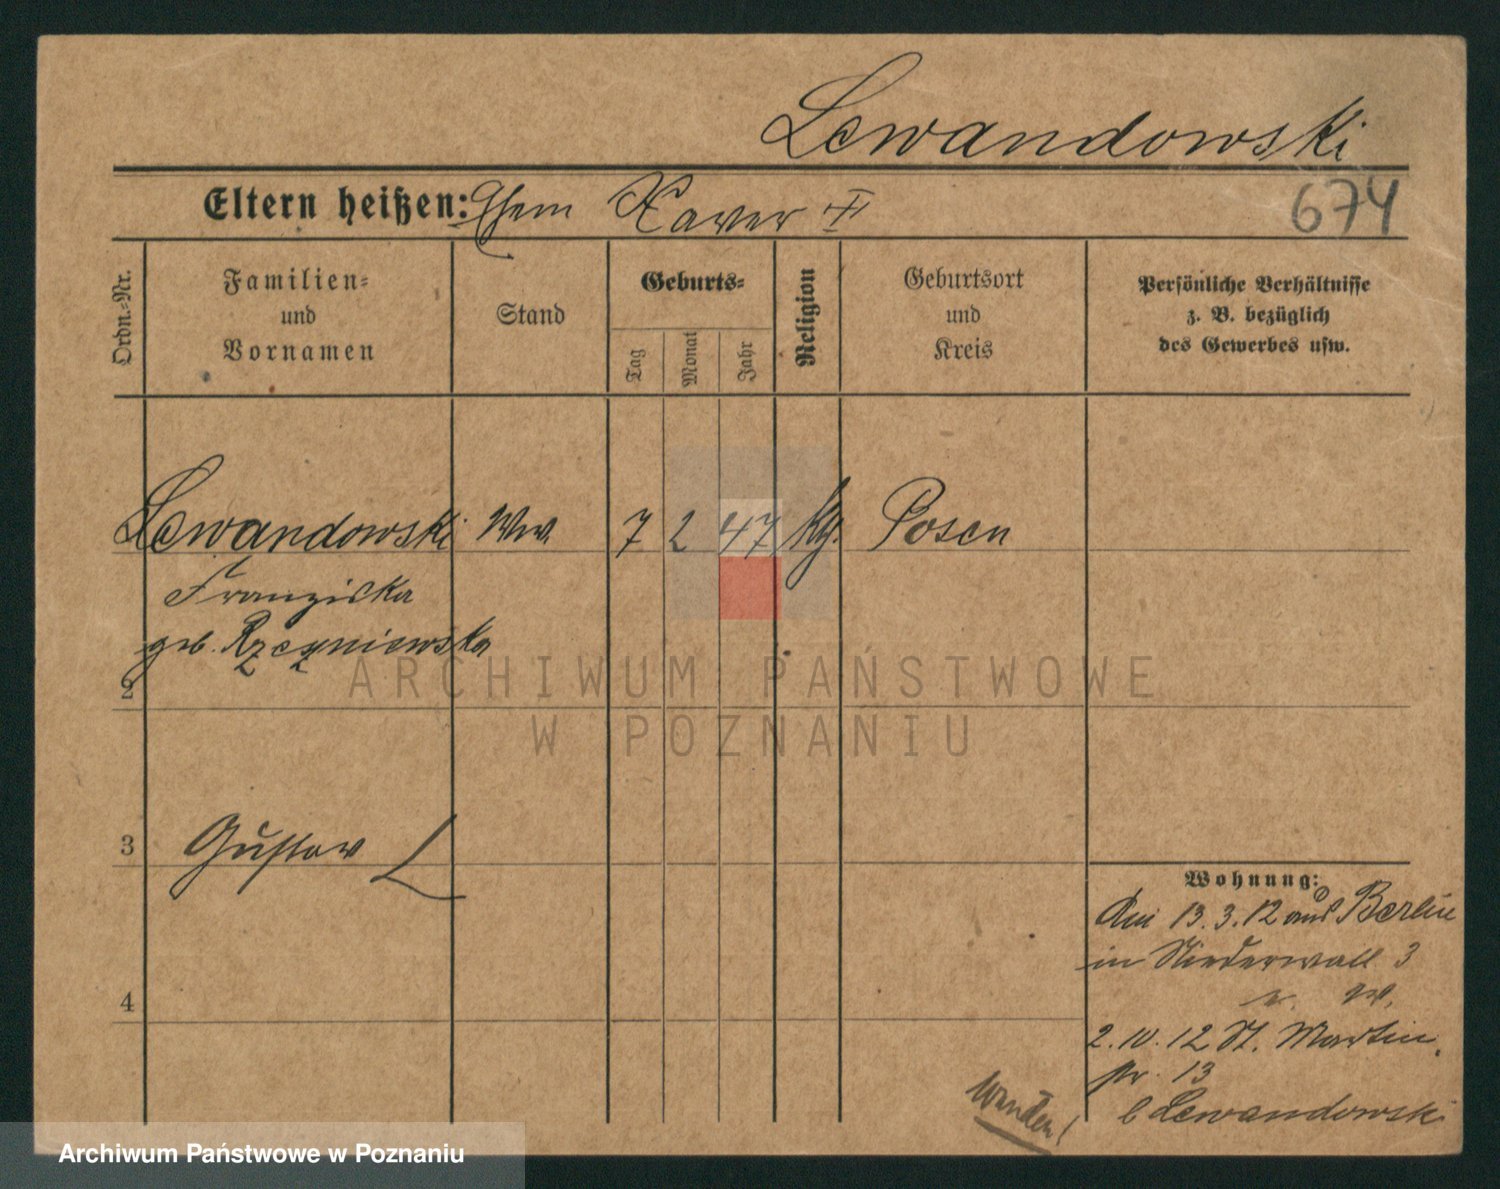 Lewandowski
Eltern heißen: Ehem Xaver †
674
Ordn.-Nr.
Familien-
und
Vornamen
Stand
Geburts-
Tag
Monat
Jahr
Religion
Geburtsort
und
Kreis
Persönliche Verhältnisse
z. B. bezüglich
des Gewerbes usw.
Lewandowski Ww. 7 2 47 Kth. Posen
Franziska
geb. Rzezniewska
2
ARCHIWUM PAŃSTWOWE
W POZNANIU
3 Gustav L
4
Wohnung:
13.3.12 aus Berlin
in Niederwall 3
2.10.12 St. Martin
str. 13
b Lewandowski
Archiwum Państwowe w Poznaniu